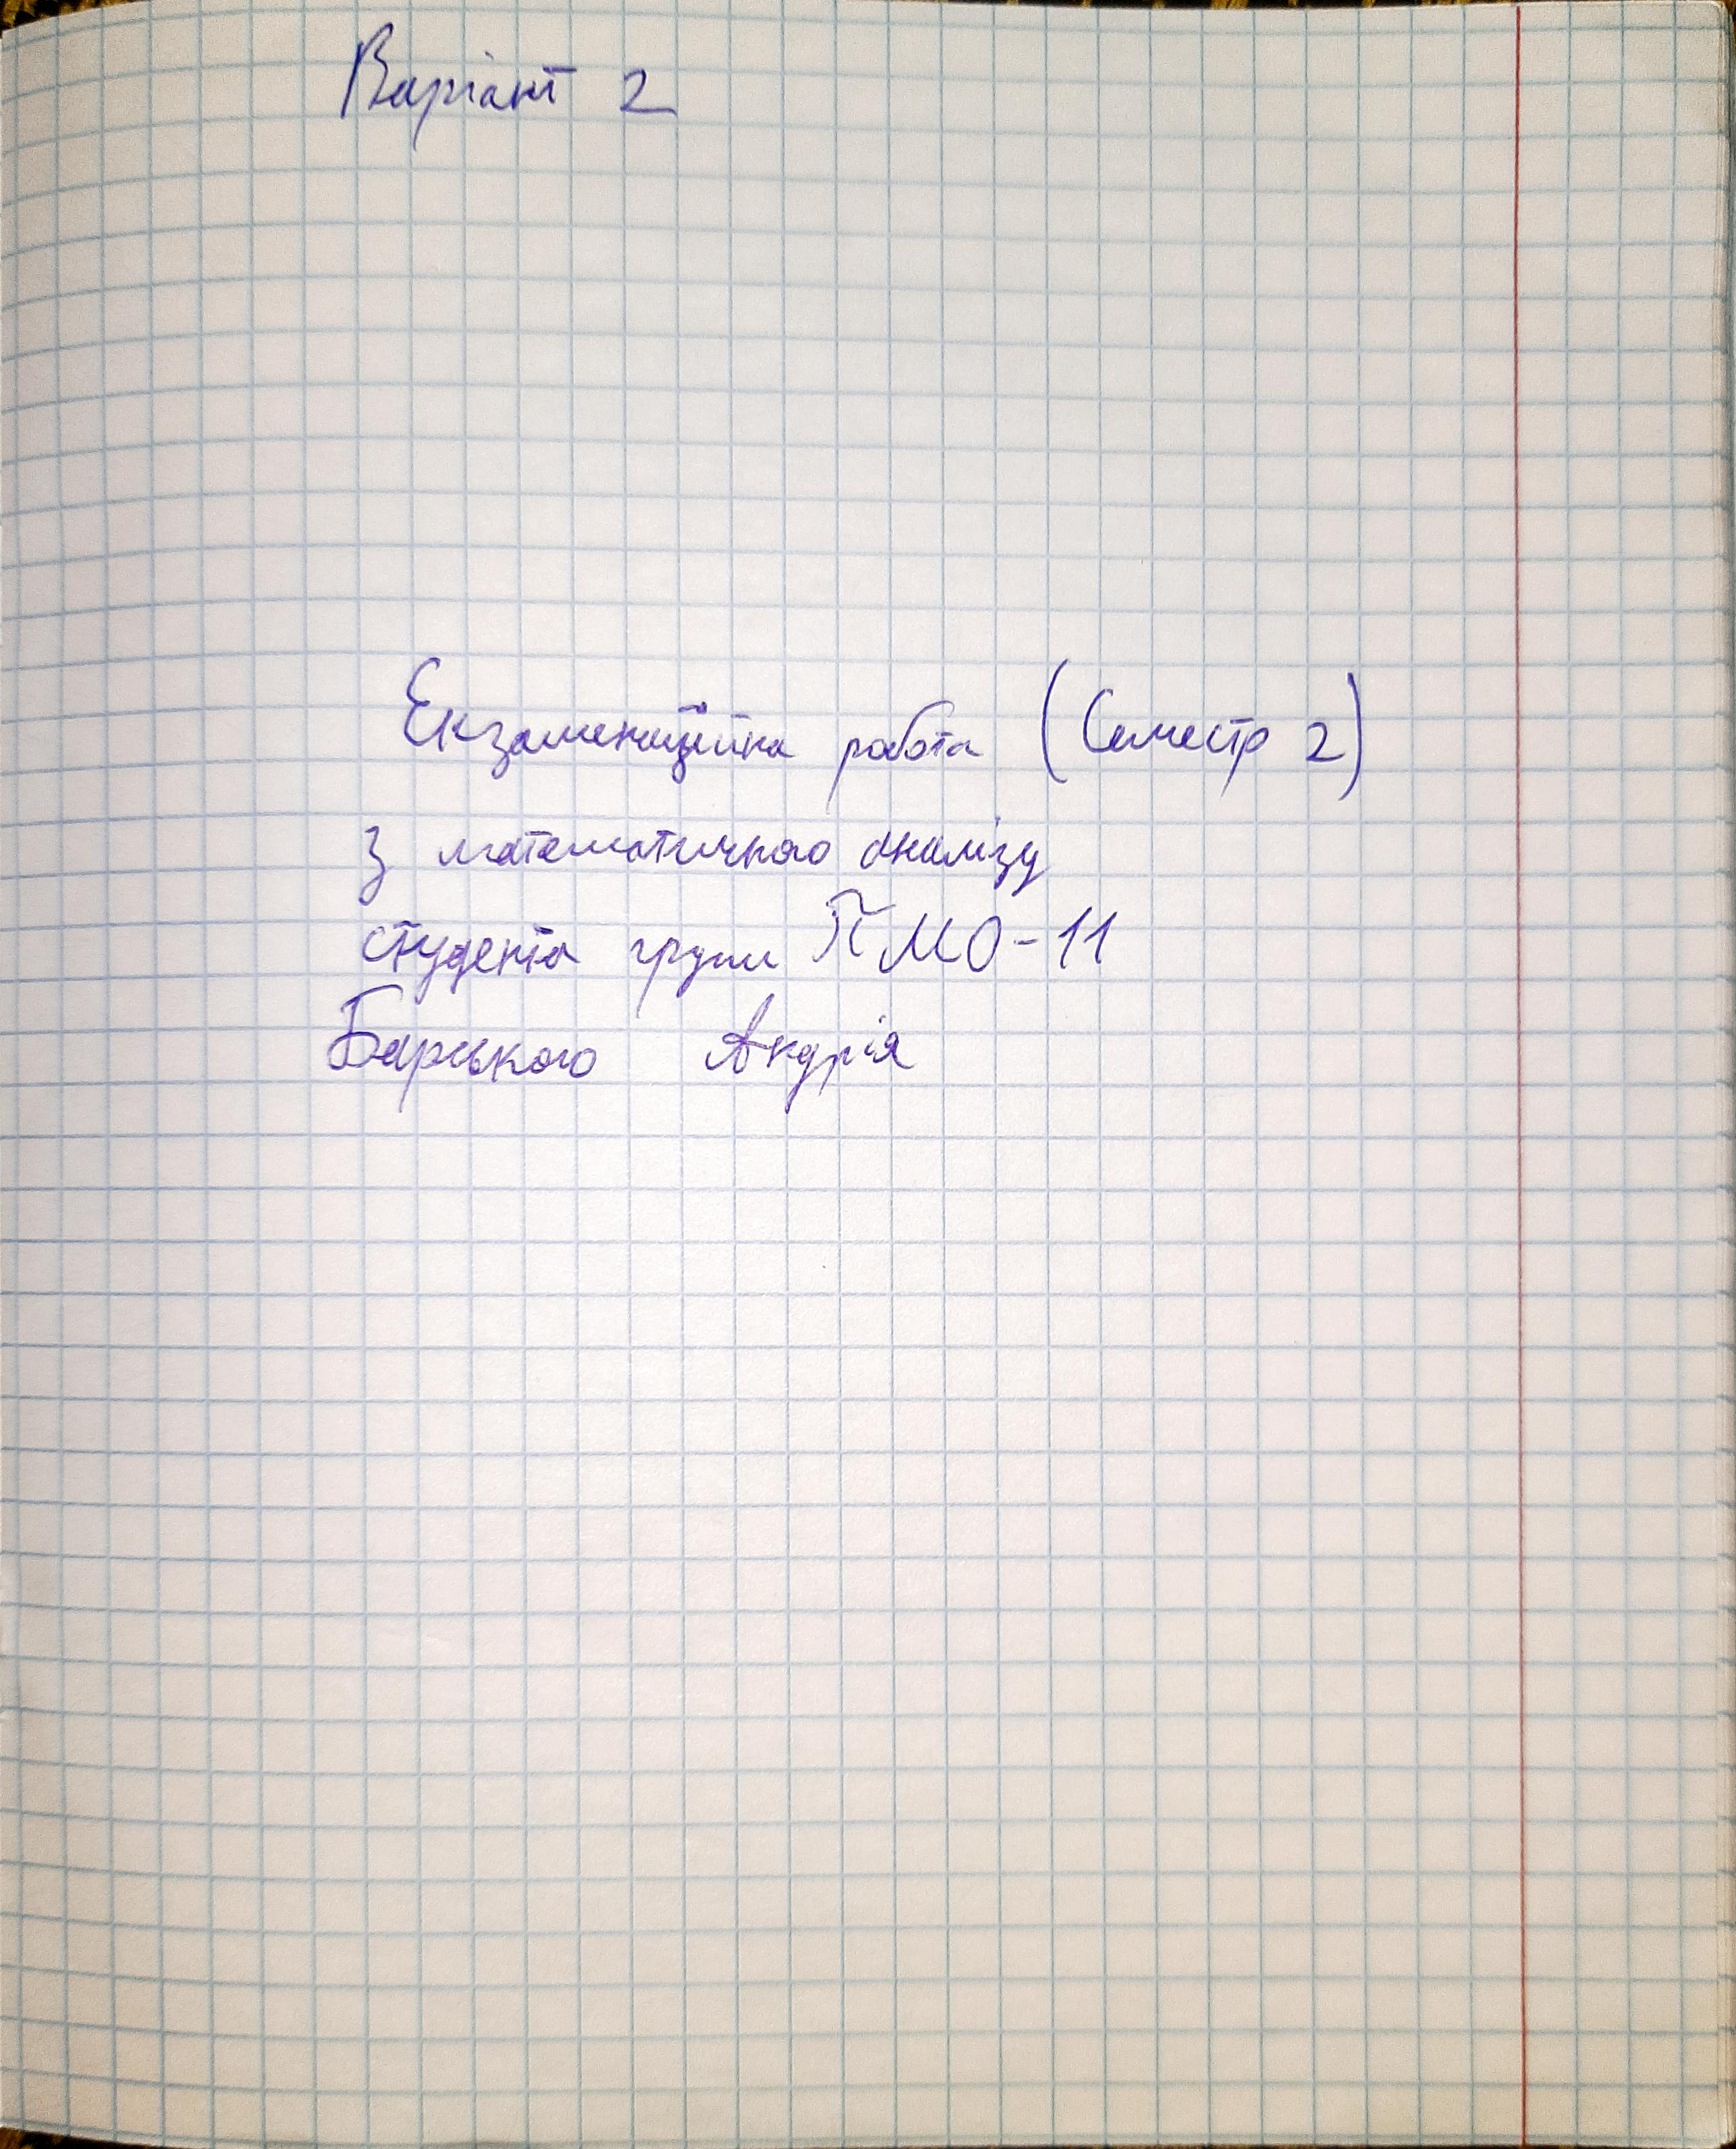 Варіант 2
Екзаменаційна робота (Семестр 2)
з математичного аналізу
студента групи ПМО-11
Барського Андрія